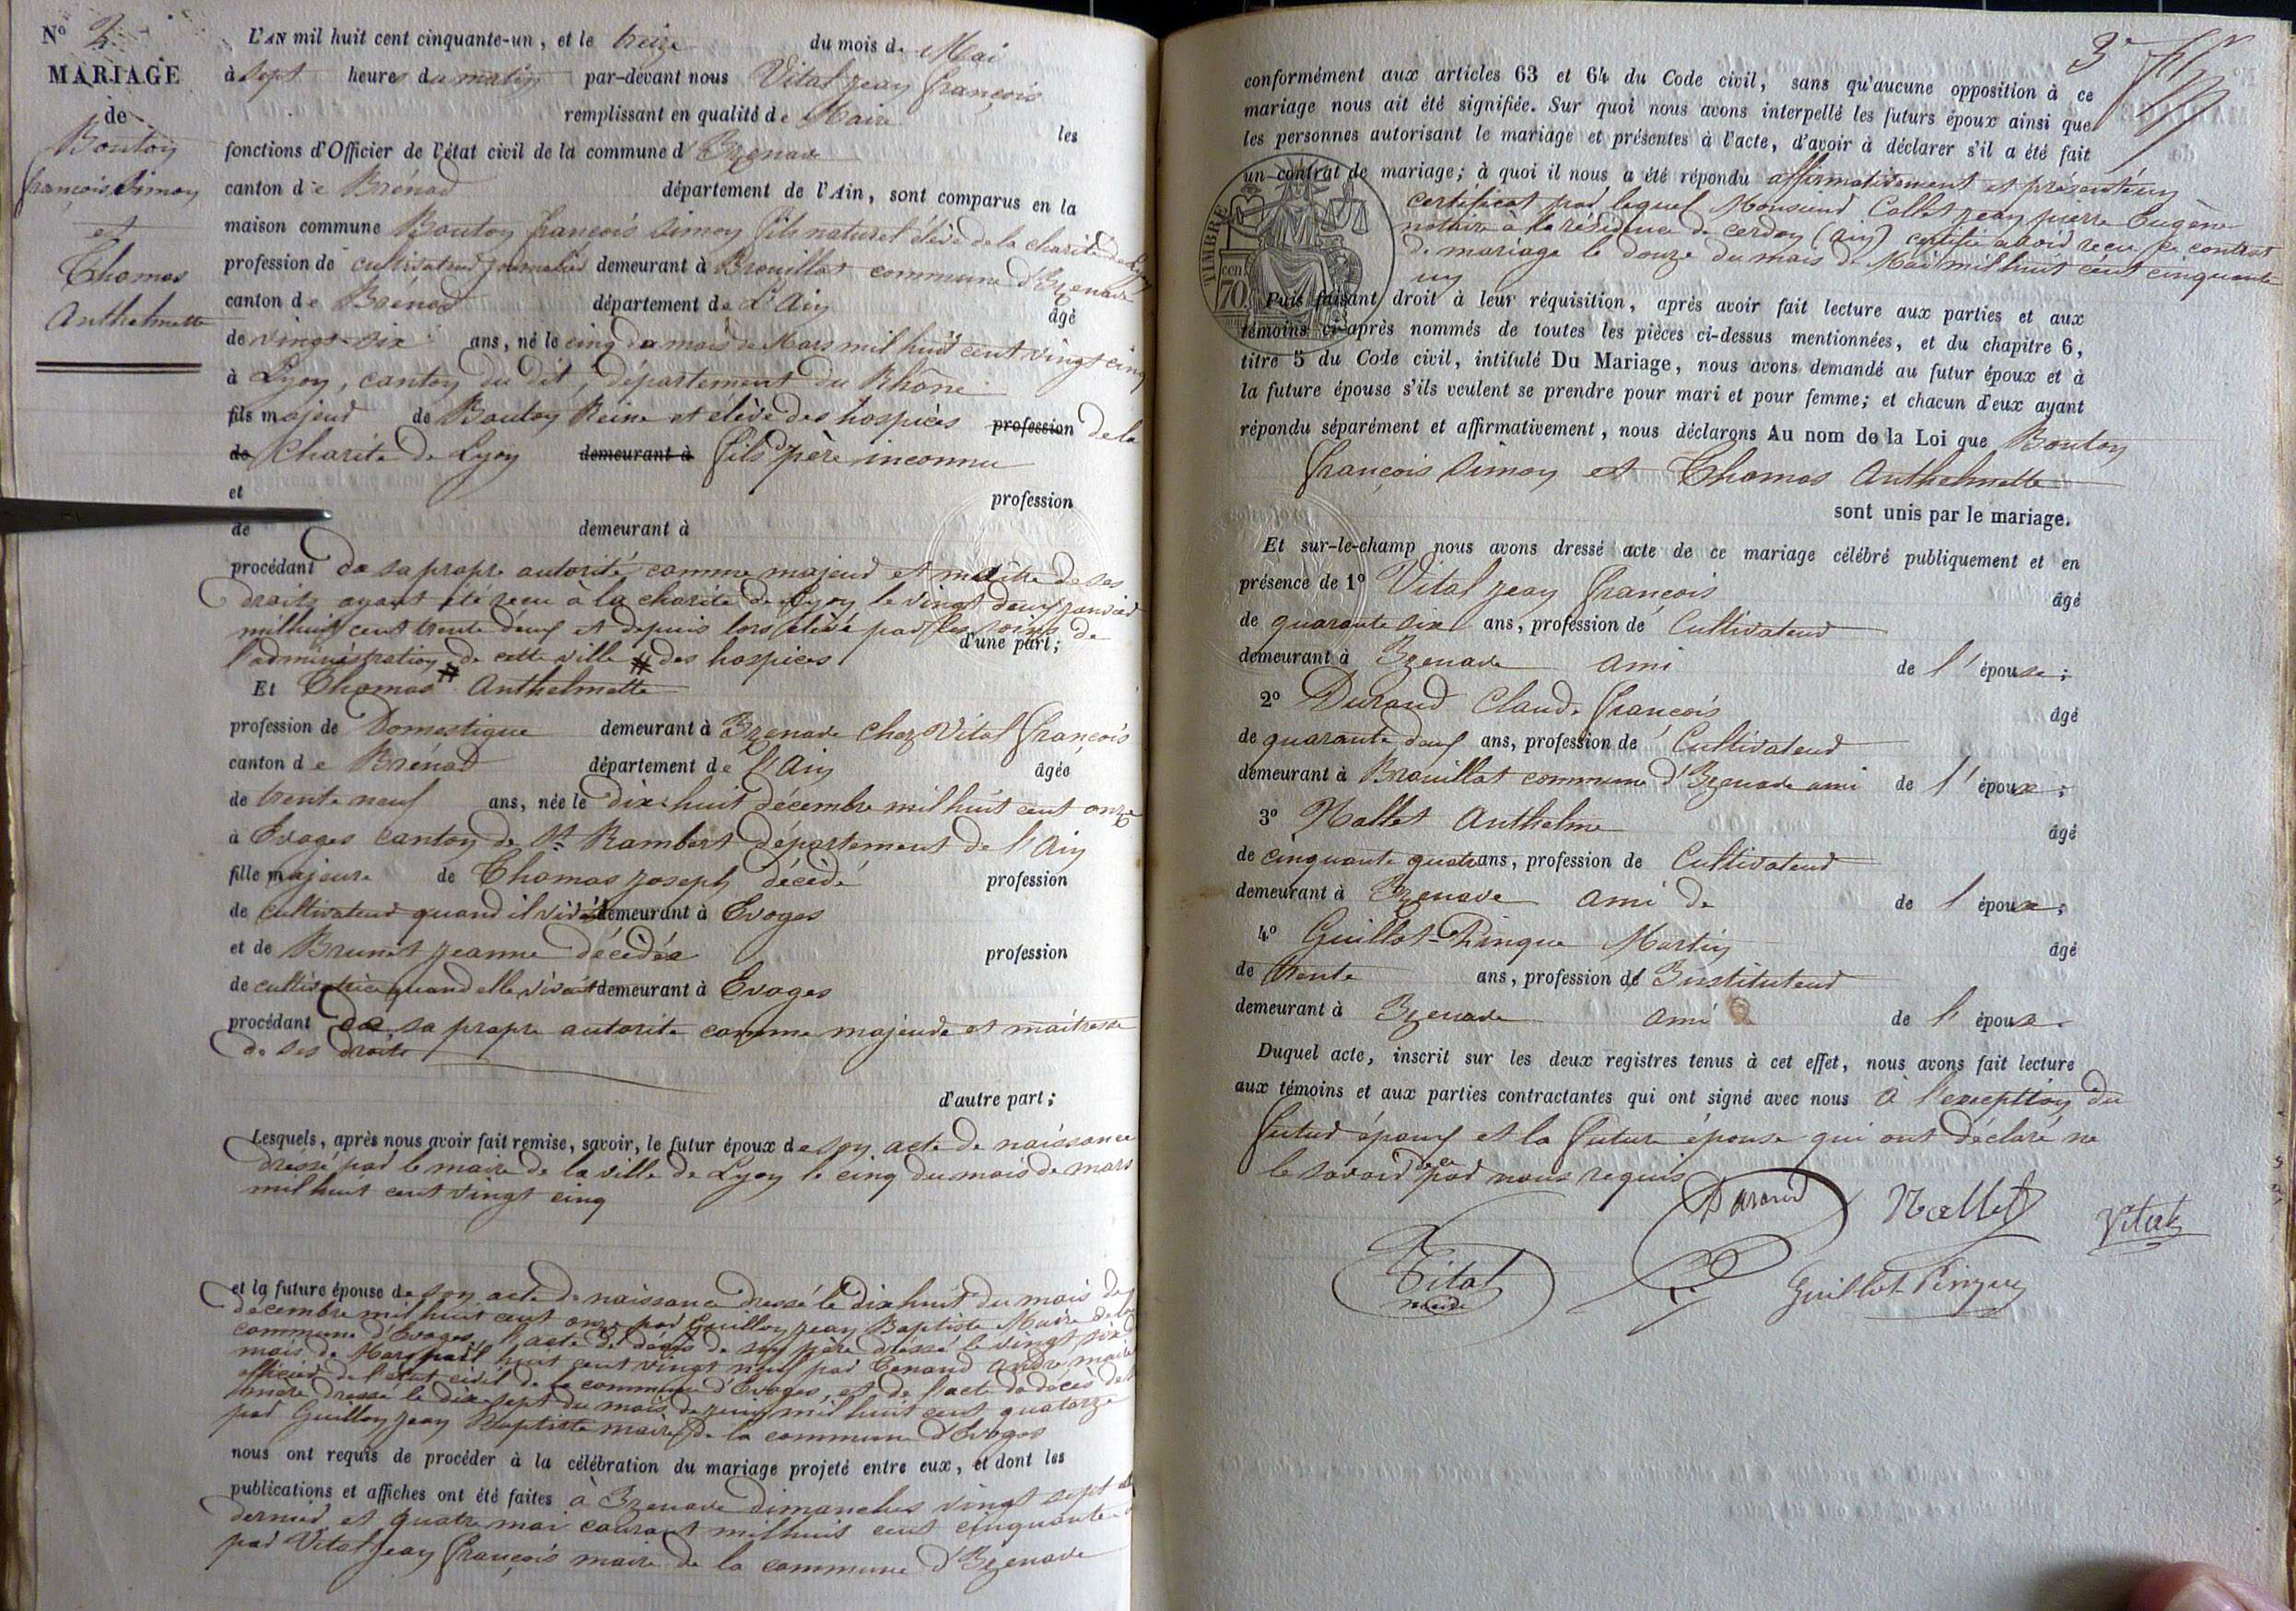 N° 2.
MARIAGE
de
Bouton
françois Simon
et
Thomas
Anthelmette
L'AN mil huit cent cinquante-un, et le treize du mois de Mai
à sept heures du matin par-devant nous Vital jean françois
remplissant en qualité de Maire les
fonctions d'Officier de l'état civil de la commune d'Izenave
canton de Brénod département de l'Ain, sont comparus en la
maison commune Bouton françois Simon fils naturel élève de la charité de Lyon
profession de cultivateur journalier demeurant à Brouillat commune d'Izenave
canton de Brénod département de l'Ain âgé
de vingt-six ans, né le cinq du mois de Mars mil huit cent vingt cinq
à Lyon, canton du dit, département du Rhône
fils majeur de Bouton Reine et élève des hospices profession de la
de Charité de Lyon demeurant à fils père inconnu
et profession
de demeurant à
procédant de sa propre autorité comme majeur et maître de ses
droits ayant été reçu à la charité de Lyon le vingt deux janvier
mil huit cent trente deux et depuis lors élevé par les soins de
l'administration de cette ville # des hospices d'une part;
Et Thomas Anthelmette
profession de Domestique demeurant à Izenave chez Vital françois
canton de Brénod département de l'Ain âgée
de trente neuf ans, née le dix-huit décembre mil huit cent onze
à Evoges canton de St Rambert département de l'Ain
fille majeure de Thomas joseph décédé profession
de cultivateur quand il vivait demeurant à Evoges
et de Brunet jeanne décédée profession
de cultivatrice quand elle vivait demeurant à Evoges
procédant de sa propre autorité comme majeure et maîtresse
de ses droits
d'autre part;
Lesquels, après nous avoir fait remise, savoir, le futur époux de son acte de naissance
dressé par le maire de la ville de Lyon le cinq du mois de mars
mil huit cent vingt cinq
et la future épouse de son acte de naissance dressé le dix huit du mois de
décembre mil huit cent onze par Guillon jean Baptiste Maire de la
commune d'Evoges, l'acte de décès de son père dressé le vingt six du
mois de Mars mil huit cent vingt neuf par Tenand André maire
officier de l'état civil de la commune d'Evoges, et de l'acte de décès de
mère dressé le dix sept du mois de juin mil huit cent quatorze
par Guillon jean Baptiste maire de la commune d'Evoges
nous ont requis de procéder à la célébration du mariage projeté entre eux, et dont les
publications et affiches ont été faites à Izenave dimanches vingt sept
dernier et quatre mai courant mil huit cent cinquante
par Vital jean françois maire de la commune d'Izenave
3e
conformément aux articles 63 et 64 du Code civil, sans qu'aucune opposition à ce
mariage nous ait été signifiée. Sur quoi nous avons interpellé les futurs époux ainsi que
les personnes autorisant le mariage et présentes à l'acte, d'avoir à déclarer s'il a été fait
un contrat de mariage; à quoi il nous a été répondu affirmativement et présenté un
certificat par lequel Monsieur Collet jean pierre Eugène
notaire à la résidence de cerdon (ain) certifie avoir reçu ce contrat
de mariage le douze du mois de Mai mil huit cent cinquante
un
TIMBRE
70
Puis faisant droit à leur réquisition, après avoir fait lecture aux parties et aux
témoins ci-après nommés de toutes les pièces ci-dessus mentionnées, et du chapitre 6,
titre 5 du Code civil, intitulé Du Mariage, nous avons demandé au futur époux et à
la future épouse s'ils veulent se prendre pour mari et pour femme; et chacun d'eux ayant
répondu séparément et affirmativement, nous déclarons Au nom de la Loi que Bouton
françois Simon et Thomas Anthelmette
sont unis par le mariage.
Et sur-le-champ nous avons dressé acte de ce mariage célébré publiquement et en
présence de 1° Vital jean françois âgé
de quarante six ans, profession de Cultivateur
demeurant à Izenave ami de l'épouse;
2° Durand Claude françois âgé
de quarante deux ans, profession de Cultivateur
demeurant à Brouillat commune d'Izenave ami de l'époux;
3° Nallet Anthelme âgé
de cinquante quatre ans, profession de Cultivateur
demeurant à Izenave ami de de l'époux;
4° Guillot-Pingue Martin âgé
de trente ans, profession d'Instituteur
demeurant à Izenave ami de l'époux.
Duquel acte, inscrit sur les deux registres tenus à cet effet, nous avons fait lecture
aux témoins et aux parties contractantes qui ont signé avec nous à l'exception du
futur époux et la future épouse qui ont déclaré ne
le savoir de ce par nous requis
Durand Nallet Vital
Vital Guillot-Pingue
maire